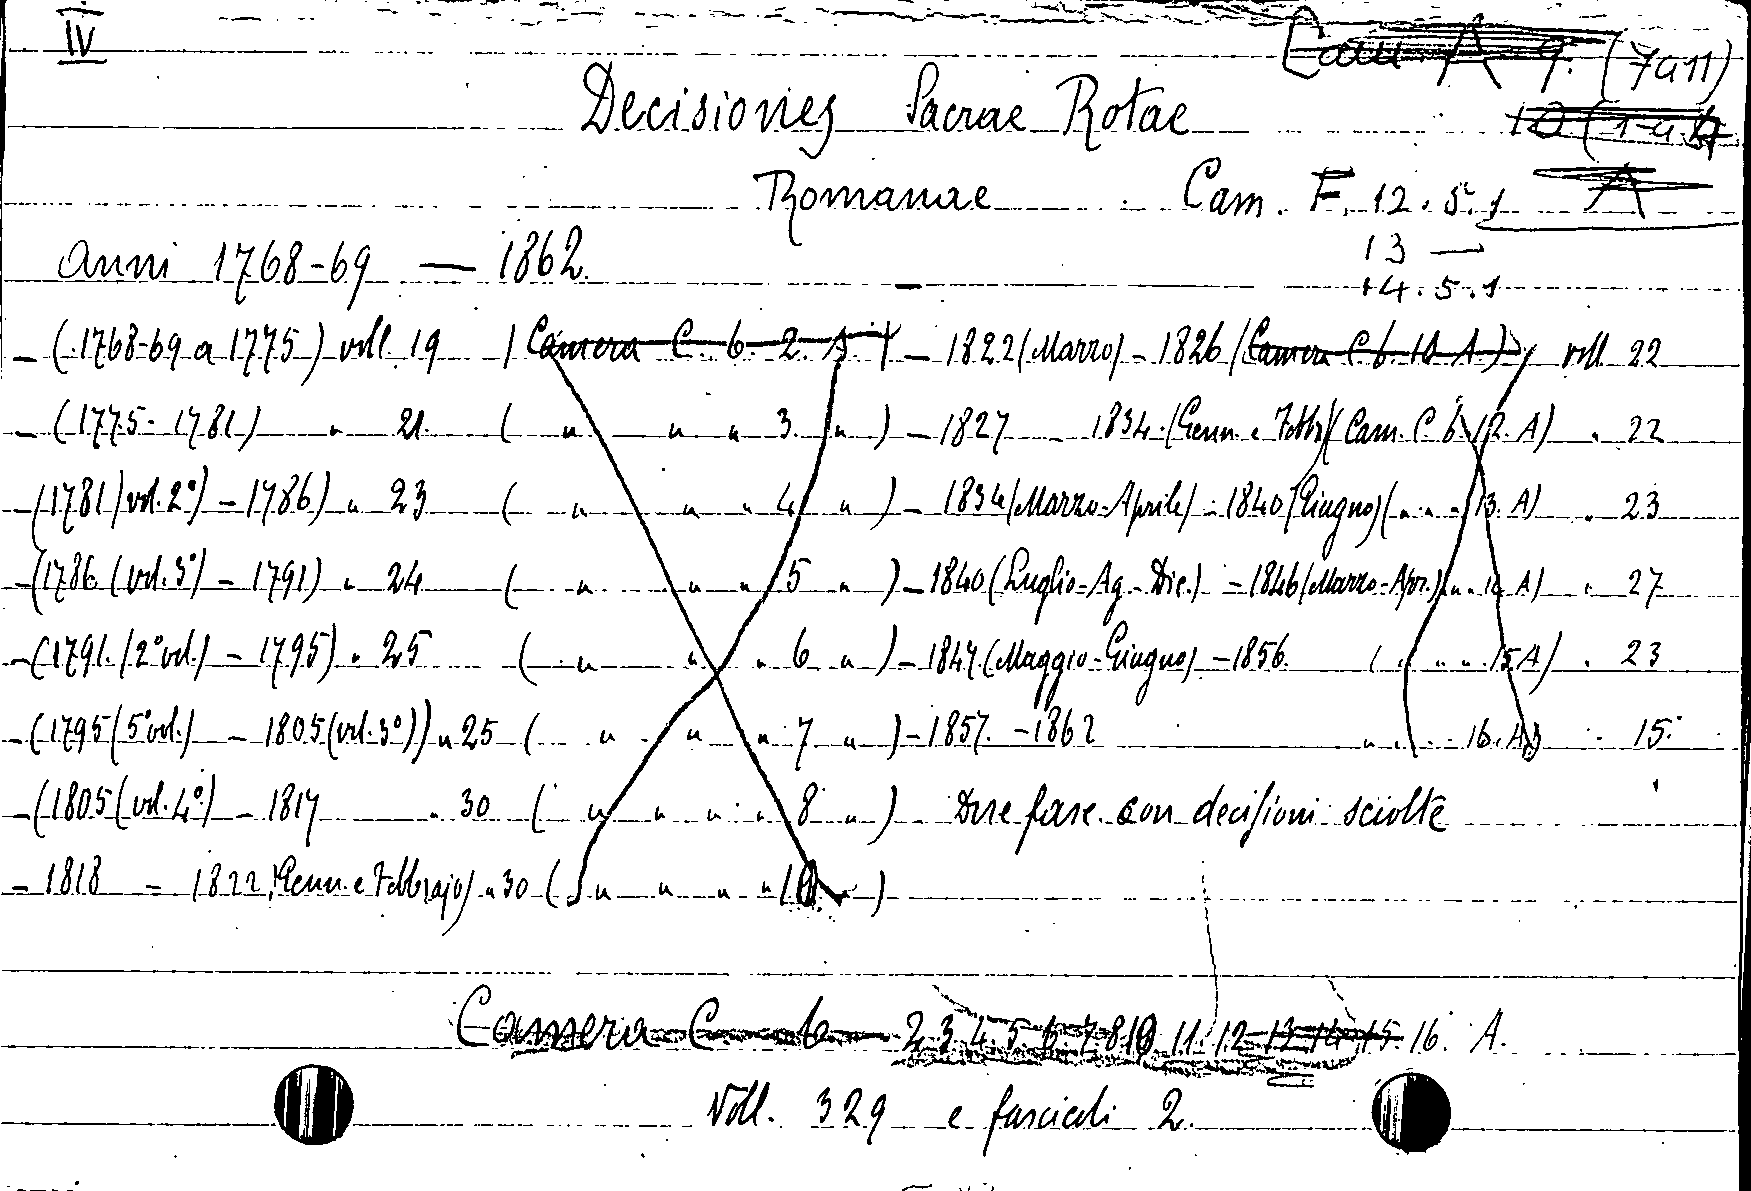 IV
Cam A 9. (7a11)
Decisiones Sacrae Rotae 10 (1-a
Romanae Cam. F. 12.5.1 A
13 —
Anni 1768-69 — 1862
14.5.1
- (1768-69 a 1775) voll. 19 (Camera C. 6. 2. A.) - 1822 (Marzo) - 1826 (Camera C 6. 10 A.) voll 22
- (1775 - 1781) " 21. ( " " " 3. " ) - 1827 - 1834. (Genn. e Febb.) (Cam. C 6. 12. A) " 22
- (1781 (vol. 2°) - 1786) " 23 ( " " " 4 " ) - 1834 (Marzo-Aprile) - 1840 (Giugno) ( " " " 13. A) " 23
- (1786 (vol. 3°) - 1791) " 24 ( " " " 5 " ) - 1840 (Luglio-Ag.-Dic.) - 1846 (Marzo-Apr.) " " 14 A) " 27
- (1791. (2° vol.) - 1795) " 25 ( " " " 6 " ) - 1847. (Maggio-Giugno) - 1856 ( " " " 15 A) " 23
- (1795 (5° vol.) - 1805 (vol. 3°)) " 25 ( " " " 7 " ) - 1857. - 1862 " " " 16. A) " 15.
- (1805 (vol. 4°) - 1817 " 30 ( " " " " 8 " ) Due fasc. con decisioni sciolte
- 1818 - 1822 (Genn. e Febbrajo) " 30 ( " " " " 10 " )
Camera C 6 2 3 4. 5. 6. 7. 8 10 11. 12 13 14 15. 16. A.
Voll. 329 e fascicoli 2.